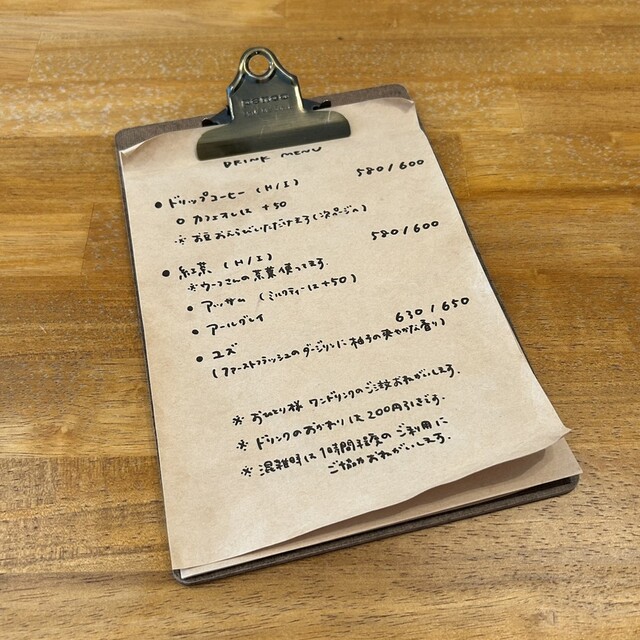 DRINK MENU
• ドリップコーヒー (H/I) 580/600
○ カフェオレは +50
※ お豆おえらびいただけます(次ページへ)
• 紅茶 (H/I) 580/600
※ウーフさんの茶葉使ってます.
• アッサム (ミルクティーは+50)
• アールグレイ
• ユズ 630/650
(ファーストフラッシュのダージリンに柚子の爽やかな香り)
※ おひとり様 ワンドリンクのご注文おねがいします.
※ ドリンクのおかわりは200円引きです.
※ 混雑時は1時間程度のご利用に
ご協力おねがいします.